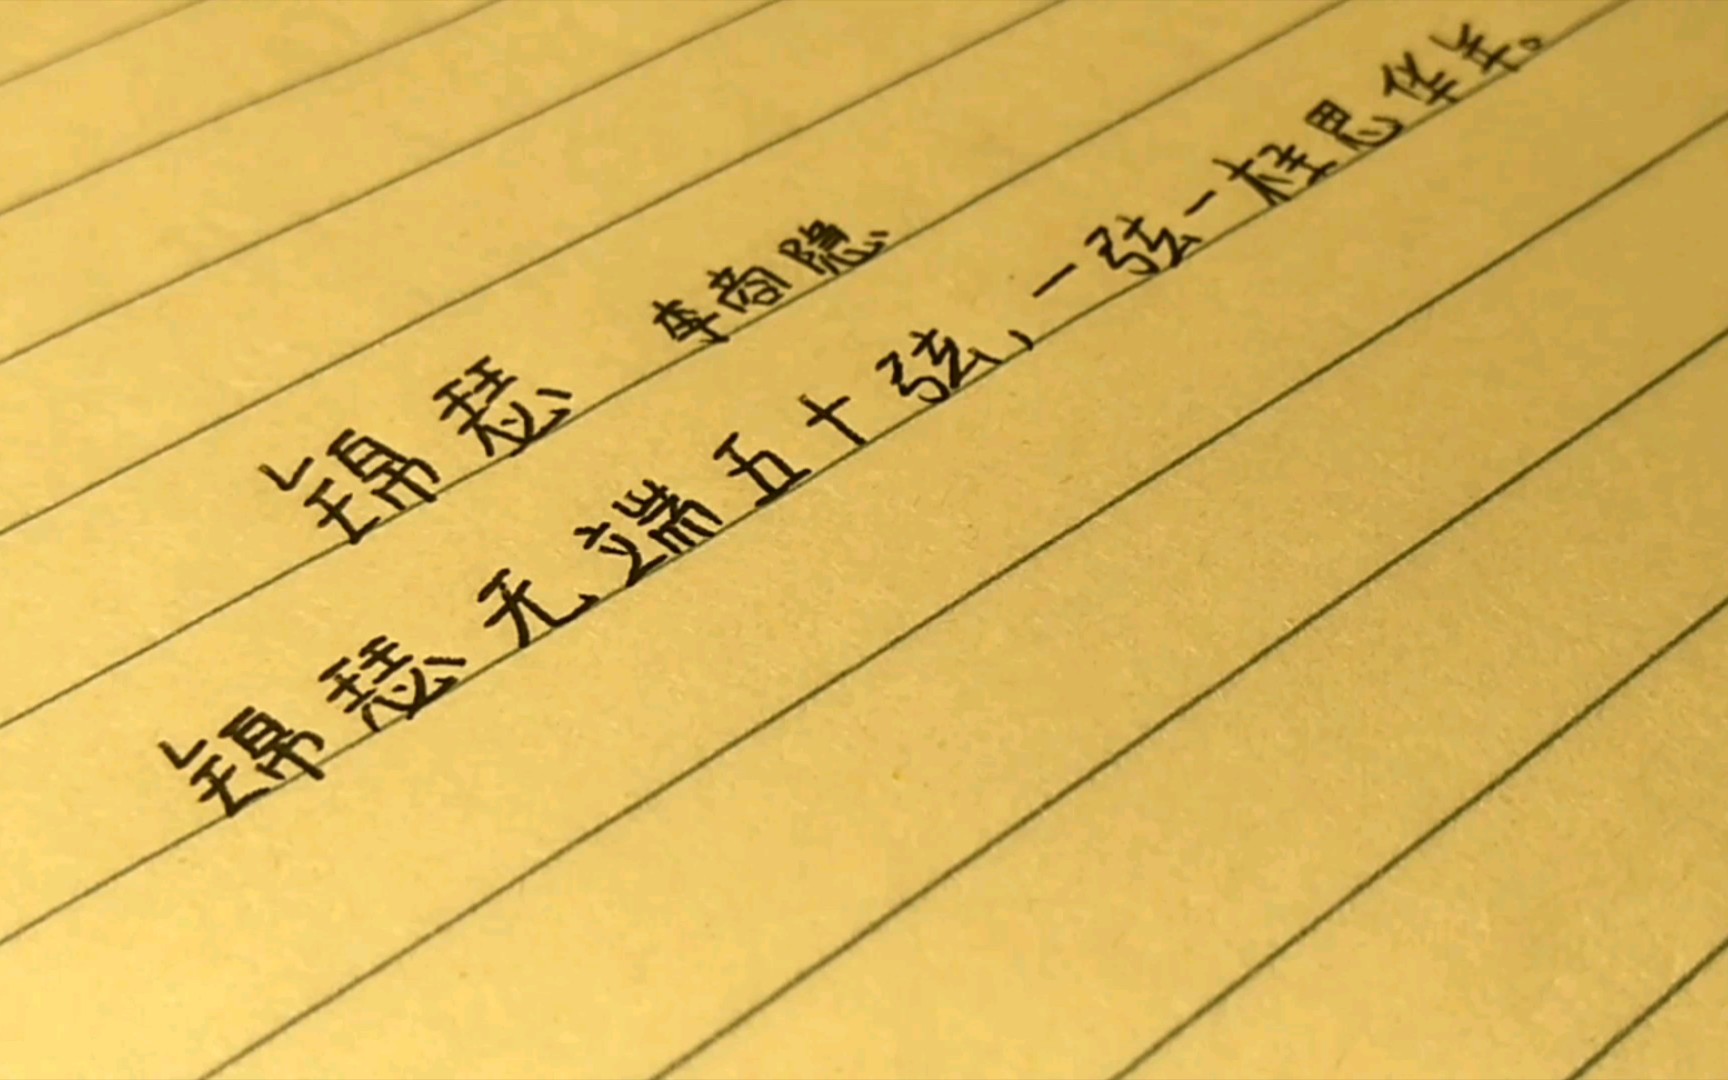 锦瑟 李商隐
锦瑟无端五十弦，一弦一柱思华年。